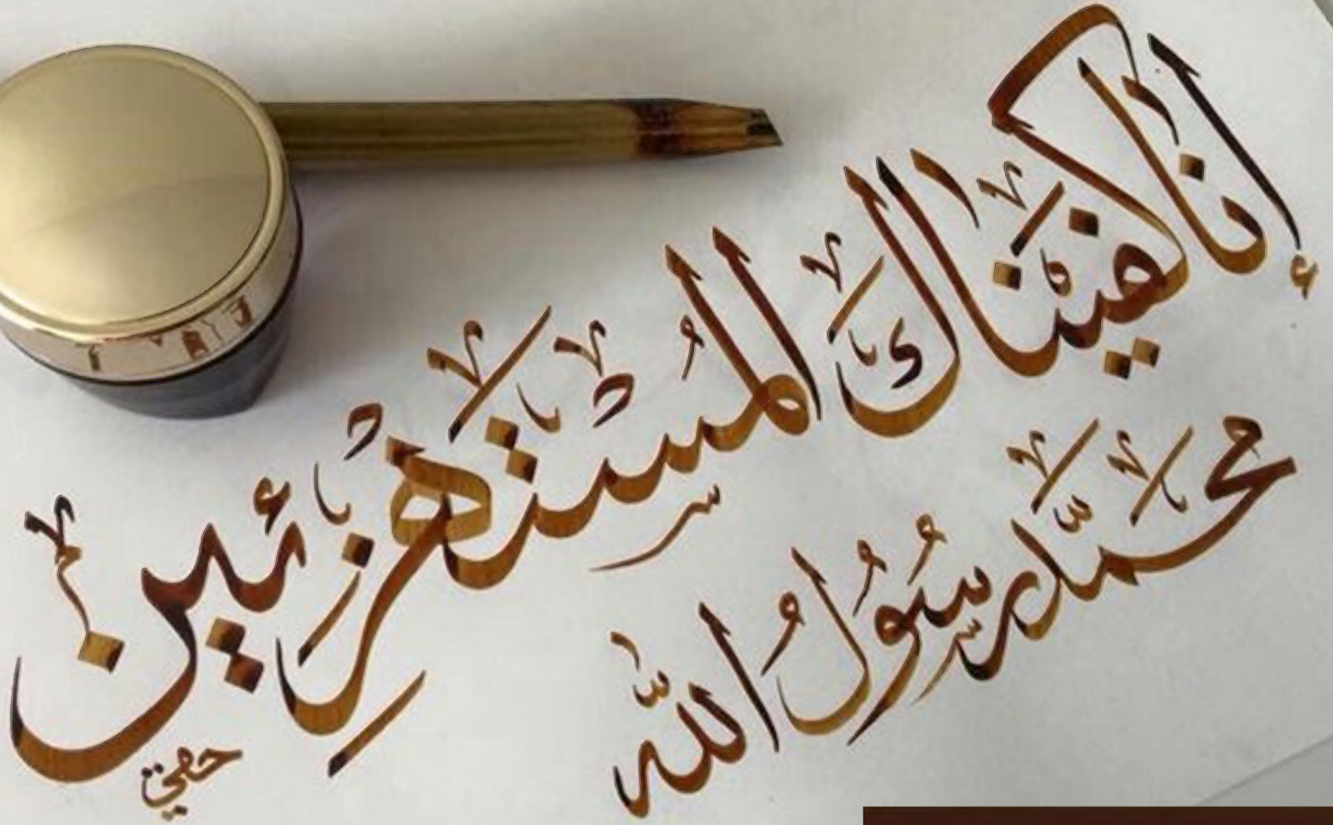 إنا كفيناك المُستهزئين
محمَّد رسُولُ اللّه